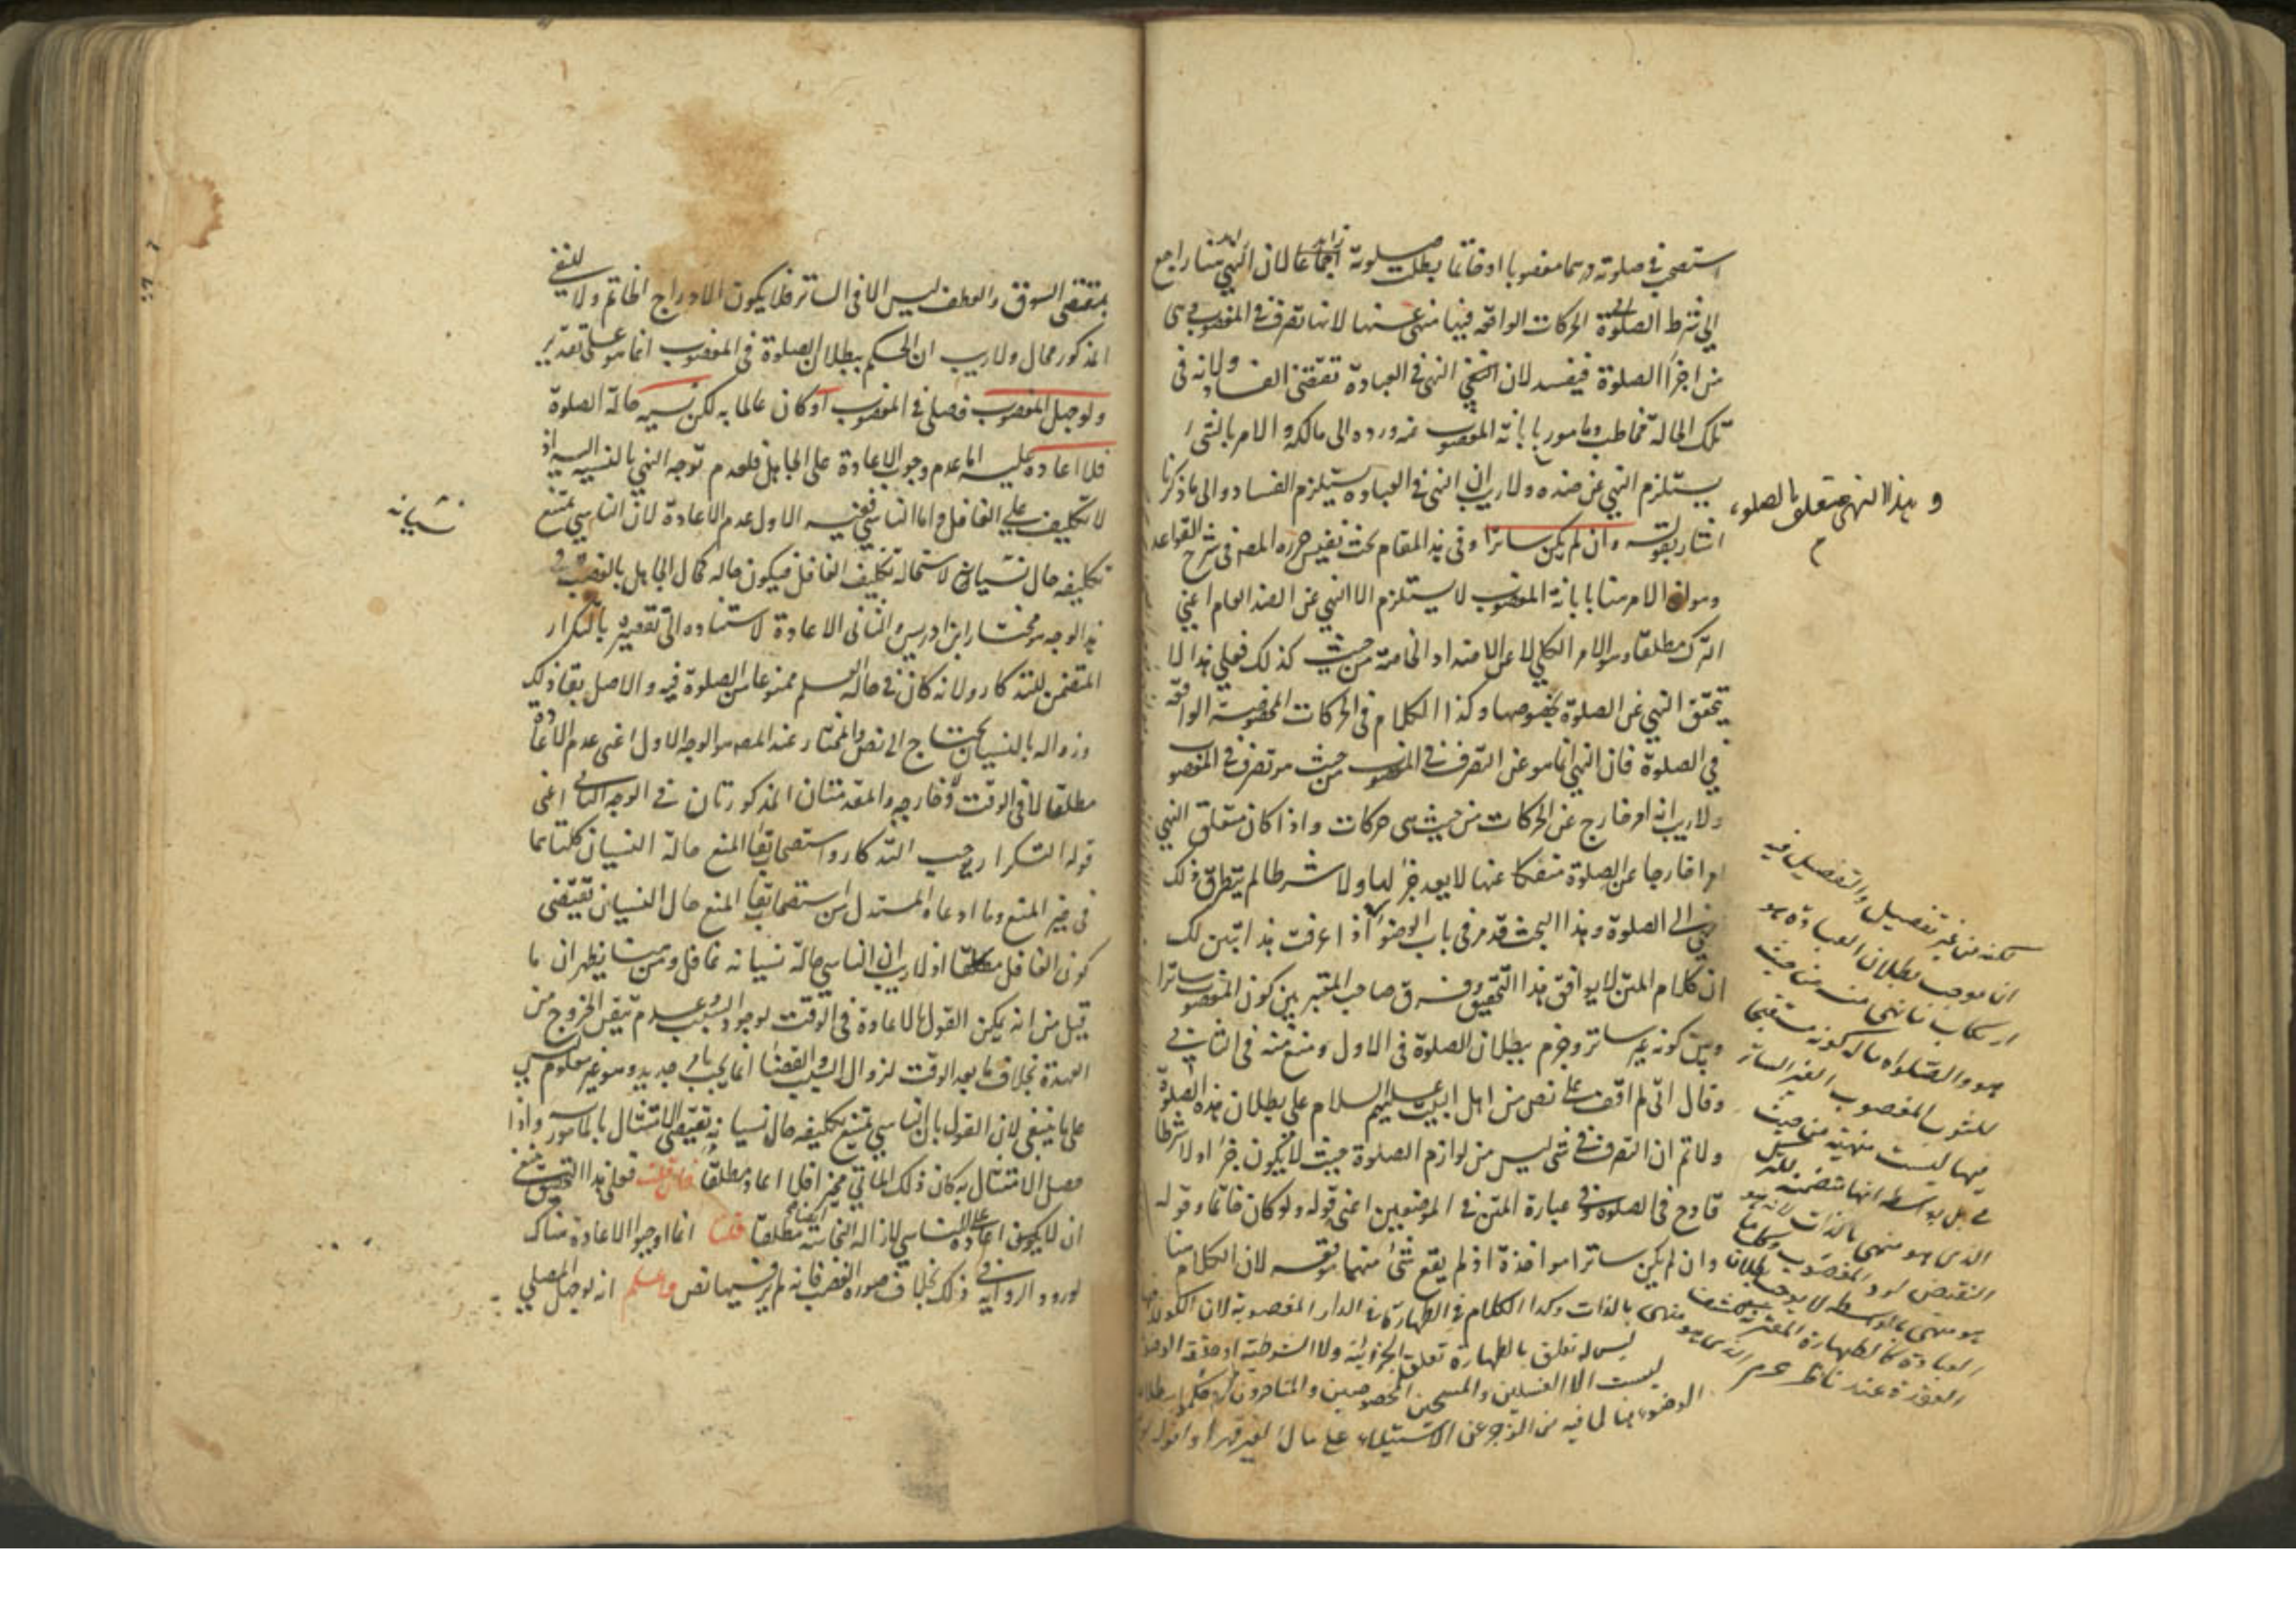 استصحب في صلوته درهما مغصوبا او خاتما بطلت صلوته اجماعا لان النهي هنا راجع
الى شرط الصلوة الحركات الواقعه فيها منهي عنها لانها تصرف في المغصوب وهي
من اجزا الصلوة فيفسد لان النهي في العبادة تقتضي الفساد ولانه في
تلك الحالة مخاطب ومامور بابانة المغصوب عنه ورده الى مالكه والامر بالشيء
يستلزم النهي عن ضده ولا ريب ان النهي في العبادة يستلزم الفساد والى ما ذكرنا
اشار بقوله وان لم يكن ساترا وفي هذا المقام بحث نفيس حرره المصه في شرح القواعد
وهو ان الامر هنا بابانة المغصوب لا يستلزم الا النهي عن الضد العام اعني
الترك مطلقا وهو الامر الكلي لا عن الاضداد الخاصة من حيث كذلك فعلى هذا لا
يتحقق النهي عن الصلوة بخصوصها وكذا الكلام في الحركات المخصوصة الواقعة
في الصلوة فان النهي انما هو عن التصرف في المغصوب من حيث هو تصرف في المغصوب
ولا ريب انه امر خارج عن الحركات من حيث هي حركات واذا كان متعلق النهي
امرا خارجا عن الصلوة منفكا عنها لا يعد جزا لها ولا شرطا لم يتطرق ذلك
الى الصلوة وهذا البحث قد مر في باب الوضوء اذا عرفت هذا تبين لك
ان كلام المتن لا يوافق هذا التحقيق وفرق صاحب المعتبر بين كون المغصوب ساترا
وبين كونه غير ساتر وجزم ببطلان الصلوة في الاول ومنع منه في الثاني
وقال اني لم اقف على نص من اهل البيت عليهم السلام على بطلان هذه الصلوة
ولاتم ان التصرف في شي ليس من لوازم الصلوة حيث لا يكون جزا او لا شرطا
قادح في الصلوة وفي عبارة المتن في الموضعين اعني قوله ولو كان خاتما وقوله
وان لم يكن ساترا مواخذة اذ لم يقع شئ منهما موقعه لان الكلام هنا
وهذا النهي متعلق بالصلوة
لكنه من غير تفصيل والتفصيل فيه
ان موجب بطلان العبادة هو
ارتكاب ما نهى عنه من حيث
هو والصلواة حالة كونه مستصحبا
للثوب المغصوب الغير الساتر
فيها ليست منهية من حيث
هي بل بواسطة انها متضمنة للتر
الذي هو منهي بالذات لانه هو
النقيض لرد المغصوب وكلما
هو منهي بالواسطه لا يوجب بطلان
العبادة كالطهارة
منهي بالذات وكذا الكلام في الطهارة في الدار المغصوبة لان الكون
ليس له تعلق بالطهارة تعلق الجزئية ولا الشرطية اذ حقيقة الوضوء
ليست الا الغسلين والمسحين المخصوصين والمتاخرون
الوضوء هنا لما فيه من الزجر عن الاستيلاء على مال الغير قهرا
بمقتضى السوق والعطف ليس الا في الساتر فلا يكون لادراج الخاتم ولا للنفي
المذكور مجال ولا ريب ان الحكم ببطلان الصلوة في المغصوب انما هو على تقدير
ولو جهل المغصوب فصلى في المغصوب او كان عالما به لكن نسيه حالة الصلوة
فلا اعادة عليه اما عدم وجوب الاعادة على الجاهل فلعدم توجه النهي بالنسبة اليه اذ
لا تكليف على الغافل واما الناسي ففيه الاول عدم الاعادة لان الناسي يمتنع
نسيانه
تكليفه حال نسيانه لاستحالة تكليف الغافل فيكون حاله كحال الجاهل بالغصب و
هذا الوجه هو مختار ابن ادريس والثاني الاعادة لاستناده الى تقصيره بالتكرار
المتضمن للتذكار ولانه كان في حالة العلم ممنوعا من الصلوة فيه والاصل بقاء ذلك
وزواله بالنسيان يحتاج الى نص والمختار عند المصه هو الوجه الاول اعني عدم الاعادة
مطلقا لا في الوقت ولا خارجه والمقدمتان المذكورتان في الوجه الثاني اعني
قوله التكرار يوجب التذكار واستصحاب بقا المنع حالة النسيان كلتاهما
في حيز المنع وما ادعاه المستدل من استصحاب بقا المنع حال النسيان تقتضي
كون الغافل مكلفا اذ لا ريب ان الناسي حالة نسيانه غافل ومن هنا يظهر ان ما
قيل من انه يمكن القول بالاعادة في الوقت لوجود السبب وعدم تيقن الخروج من
العهدة بخلاف ما بعد الوقت لزوال السبب والقضا انما يجب بامر جديد وهو غير معلوم ليس
على ما ينبغي لان القول بان الناسي يمتنع تكليفه حال نسيانه تقتضي الامتثال بالمامور واذا
حصل الامتثال به كان ذلك الماتي مجزا فلا اعادة مطلقا فان قلت فعلى هذا التحقيق ينبغي
ان لا يكون اعادة على الناسي لازالة النجاسة مطلقا ايضا قلت انما اوجبوا الاعادة هناك
لورود الرواية في ذلك بخلاف صورة الغصب فانه لم يرد فيها نص واعلم انه لو جهل المصلي